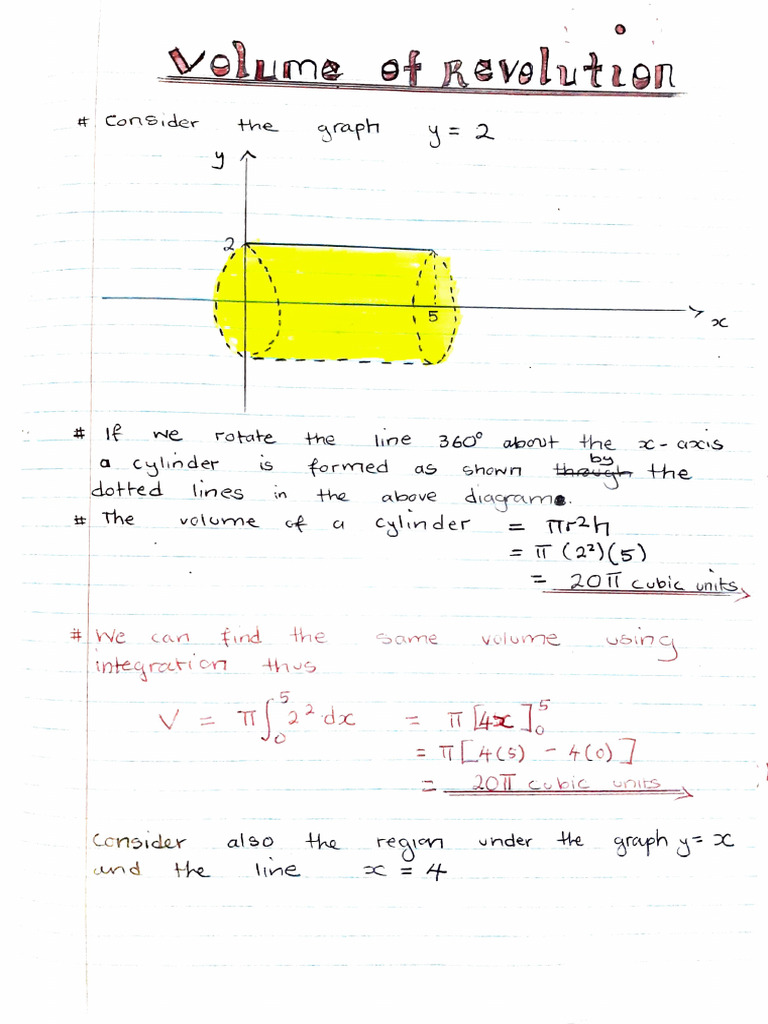 Volume of Revolution
# Consider the graph y = 2
y
2
5
x
# If we rotate the line 360° about the x-axis
a cylinder is formed as shown ~~through~~ by the
dotted lines in the above diagram.
# The volume of a cylinder = πr²h
= π (2²)(5)
= 20π cubic units
# We can find the same volume using
integration thus
V = π∫₀⁵ 2² dx = π [4x]₀⁵
= π[4(5) - 4(0)]
= 20π cubic units
Consider also the region under the graph y = x
and the line x = 4